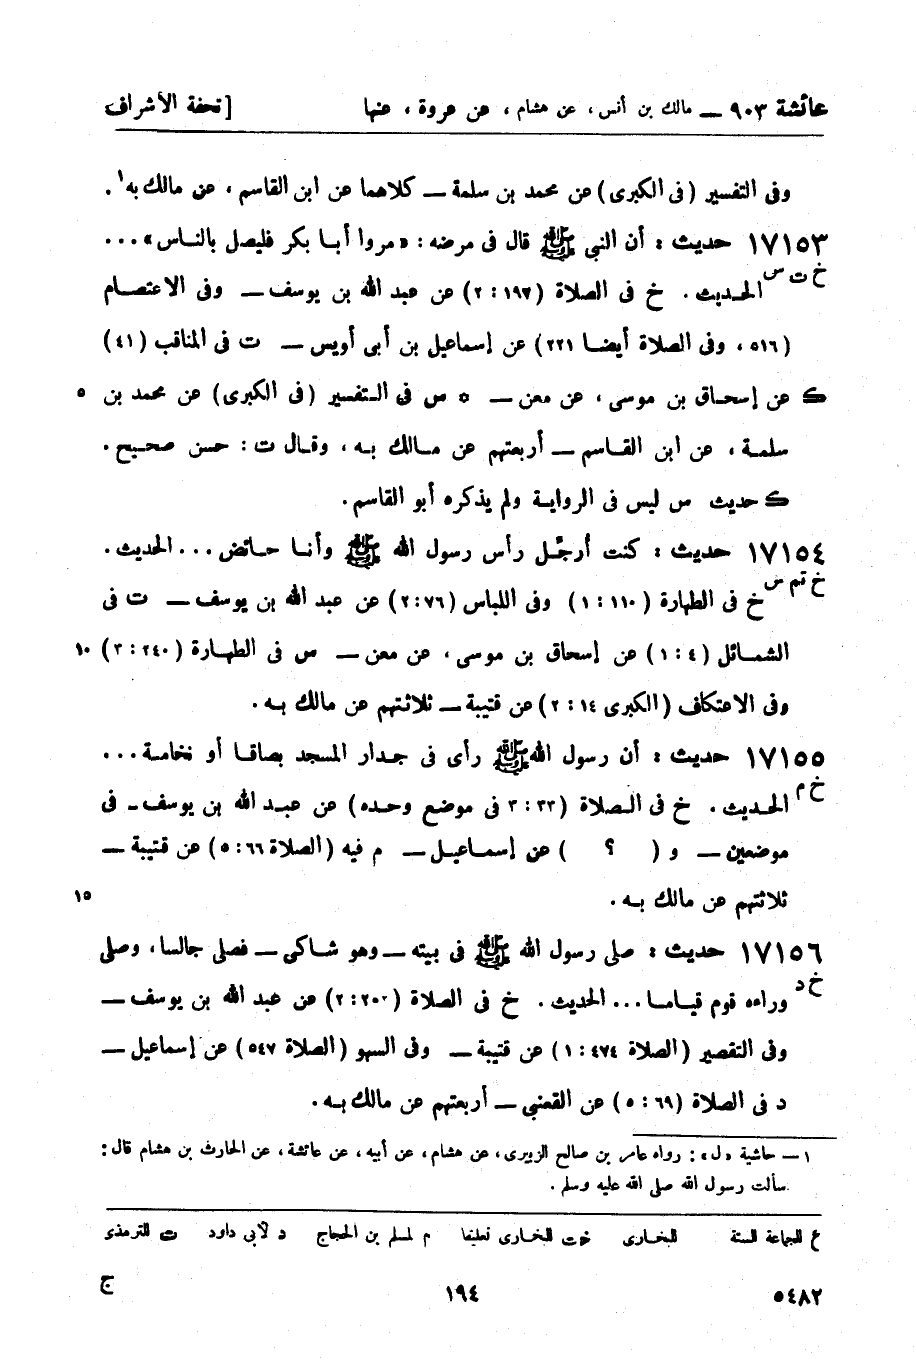 عائشة ٩٠٣ — مالك بن أنس، عن هشام، عن عروة، عنها [تحفة الأشراف
وفى التفسير (فى الكبرى) عن محمد بن سلمة — كلاهما عن ابن القاسم، عن مالك به١.
١٧١٥٣ حديث: أن النبي ﷺ قال فى مرضه: «مروا أبا بكر فليصل بالناس»...
خ ت س الحديث. خ فى الصلاة (١٩٧: ٢) عن عبد الله بن يوسف — وفى الاعتصام
(٥١٦، وفى الصلاة أيضا ٢٢١) عن إسماعيل بن أبى أويس — ت فى المناقب (٤١)
ك عن إسحاق بن موسى، عن معن — * س فى التفسير (فى الكبرى) عن محمد بن ٥
سلمة، عن ابن القاسم — أربعتهم عن مالك به، وقال ت: حسن صحيح.
ك حديث س ليس فى الرواية ولم يذكره أبو القاسم.
١٧١٥٤ حديث: كنت أرجّل رأس رسول الله ﷺ وأنا حائض...الحديث.
خ تم س خ فى الطهارة (١١٠: ١) وفى اللباس (٧٦: ٢) عن عبد الله بن يوسف — ت فى
الشمائل (٤: ١) عن إسحاق بن موسى، عن معن — س فى الطهارة (٢٤٠: ٣) ١٠
وفى الاعتكاف (الكبرى ١٤: ٢) عن قتيبة — ثلاثتهم عن مالك به.
١٧١٥٥ حديث: أن رسول الله ﷺ رأى فى جدار المسجد بصاقا أو نخامة...
خ م الحديث. خ فى الصلاة (٣٣: ٣ فى موضع وحده) عن عبد الله بن يوسف - فى
موضعين — و ( ؟ ) عن إسماعيل — م فيه (الصلاة ٦٦: ٥) عن قتيبة —
ثلاثتهم عن مالك به. ١٥
١٧١٥٦ حديث: صلى رسول الله ﷺ فى بيته — وهو شاكى — فصلى جالسا، وصلى
خ د وراءه قوم قياما...الحديث. خ فى الصلاة (٢٠٠: ٢) عن عبد الله بن يوسف —
وفى التقصير (الصلاة ٤٧٤: ١) عن قتيبة — وفى السهو (الصلاة ٥٤٧) عن إسماعيل —
د فى الصلاة (٦٩: ٥) عن القعنبي — أربعتهم عن مالك به.
١ — حاشية «ل»: رواه عامر بن صالح الزبيرى، عن هشام، عن أبيه، عن عائشة، عن الحارث بن هشام قال:
سألت رسول الله صلى الله عليه وسلم.
ع للجماعة الستة للبخارى خت للبخارى تعليقا م لمسلم بن الحجاج د لأبى داود ت للترمذى
٥٤٨٢ ١٩٤ ج